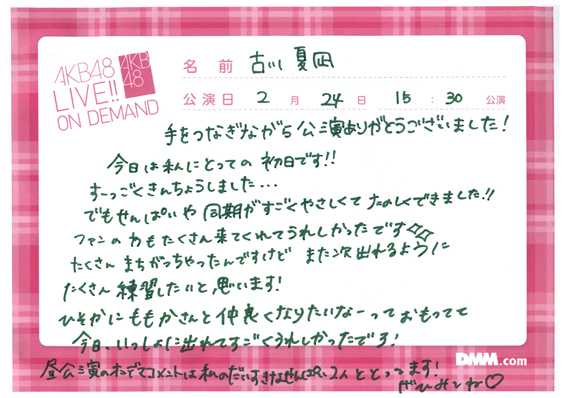 AKB48
LIVE!!
ON DEMAND
AKB
48
名 前 古川 夏凪
公演日 2 月 24 日 15 : 30 公演
手をつなぎながら公演ありがとうございました!
今日は私にとっての 初日です!!
すーっごくきんちょうしました...
でもせんぱいや 同期がすごくやさしくて たのしくできました!!
ファンの方もたくさん来てくれてうれしかったです
たくさん まちがっちゃったんですけど また次出れるように
たくさん 練習したいと思います!
ひそかにももかさんと仲良くなりたいなーっておもってて
今日、いっしょに出れてすごくうれしかったです!
昼公演のオンデマコメントは私のだいすきなせんぱい2人ととってます!
ぜひみてね♡
DMM.com